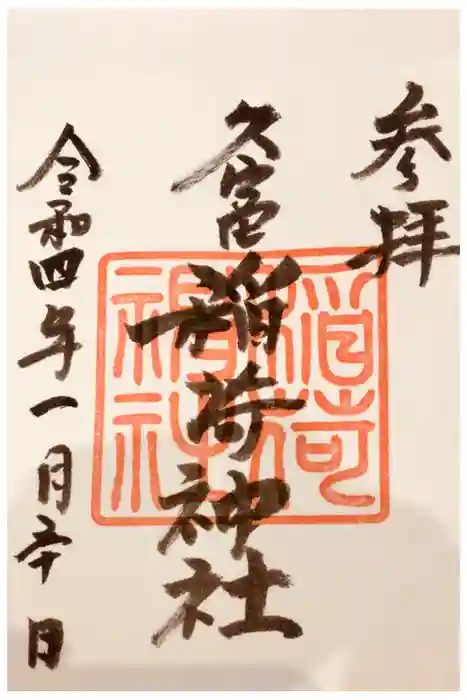 参拝
久富稲荷神社
稲荷
神社
令和四年一月 日